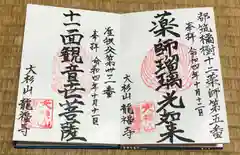 郡筑橘樹十二薬師第五番
奉拝 令和四年十月十一日
薬師瑠璃光如来
大杉山 龍福寺
准秩父第廿二番
奉拝 令和四年十月十一日
十一面観音世菩薩
大杉山 龍福寺